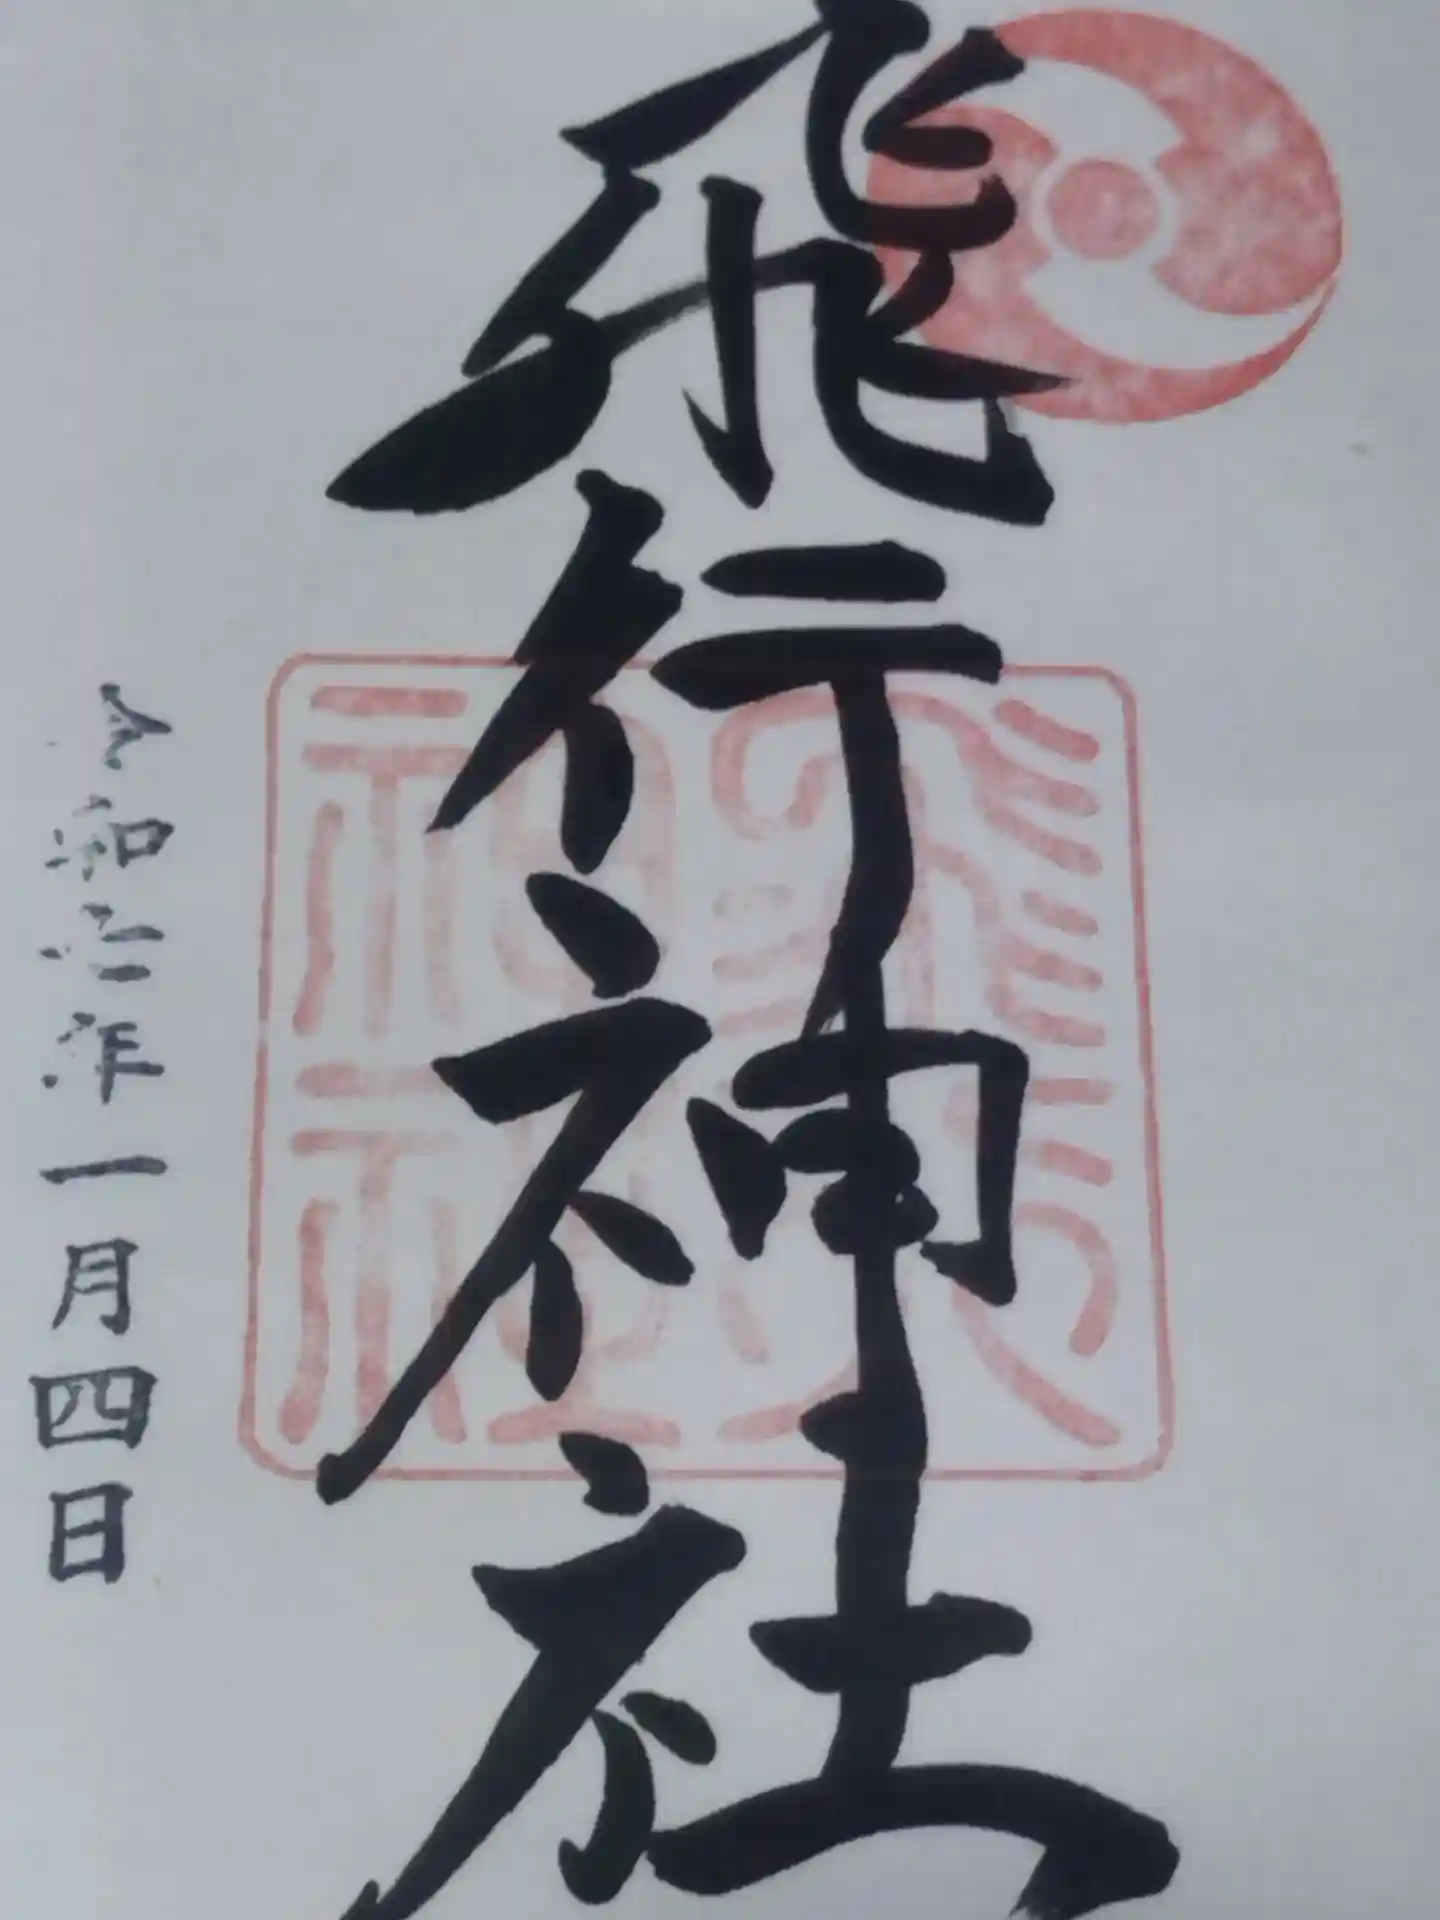 飛行神社
令和年一月四日